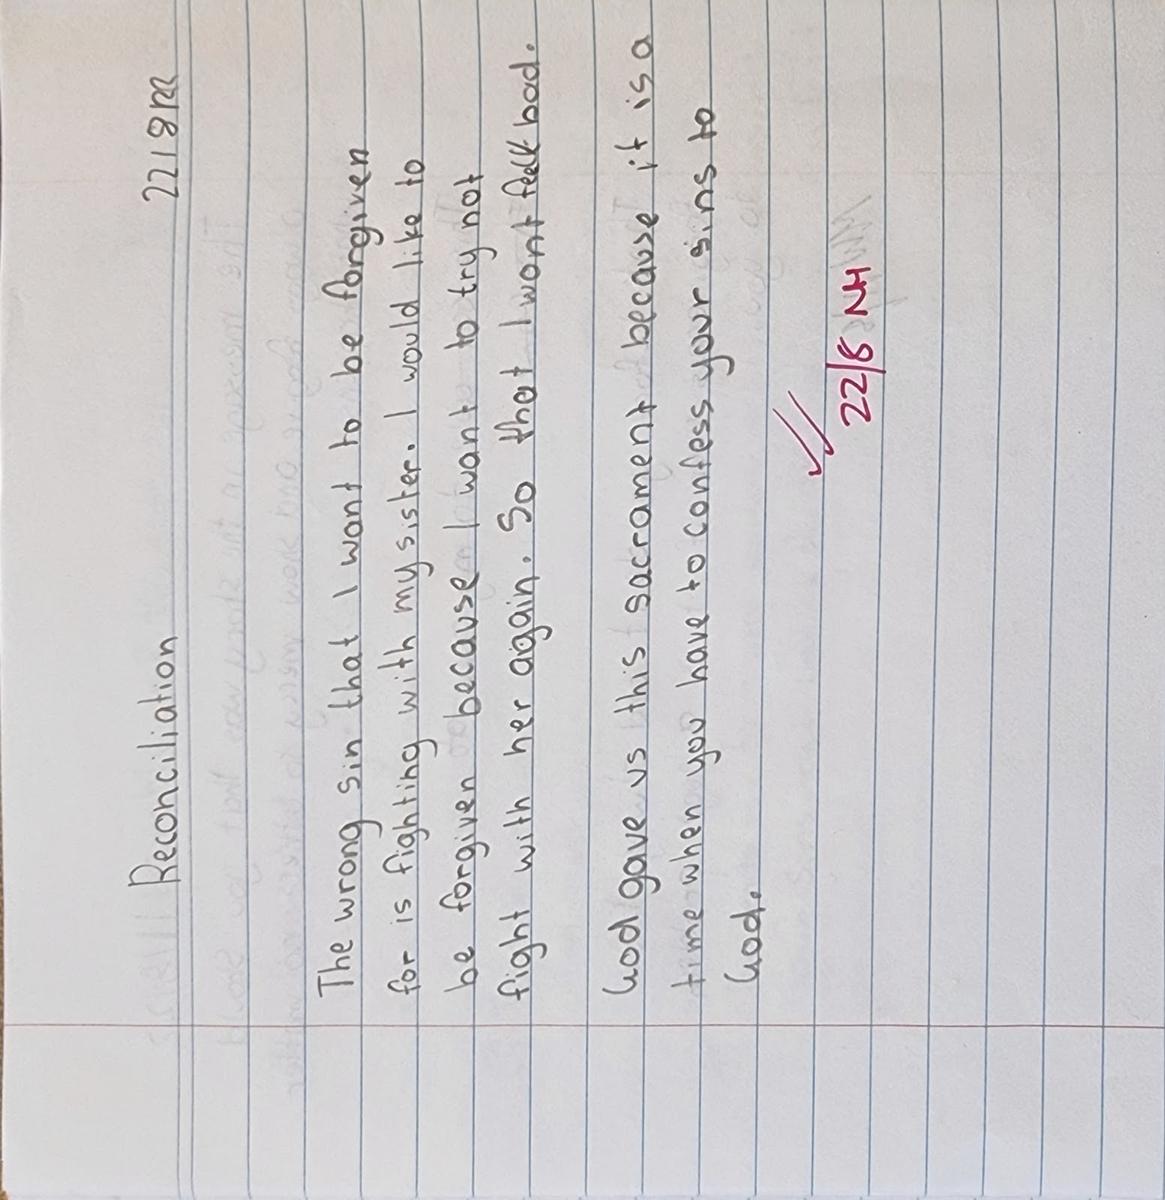 Reconciliation 22/8/22
The wrong sin that I want to be forgiven
for is fighting with my sister. I would like to
be forgiven because I want to try not
fight with her again. So that I wont feel bad.
God gave us this sacrament because it is a
time when you have to confess your sins to
God.
22/8 NH